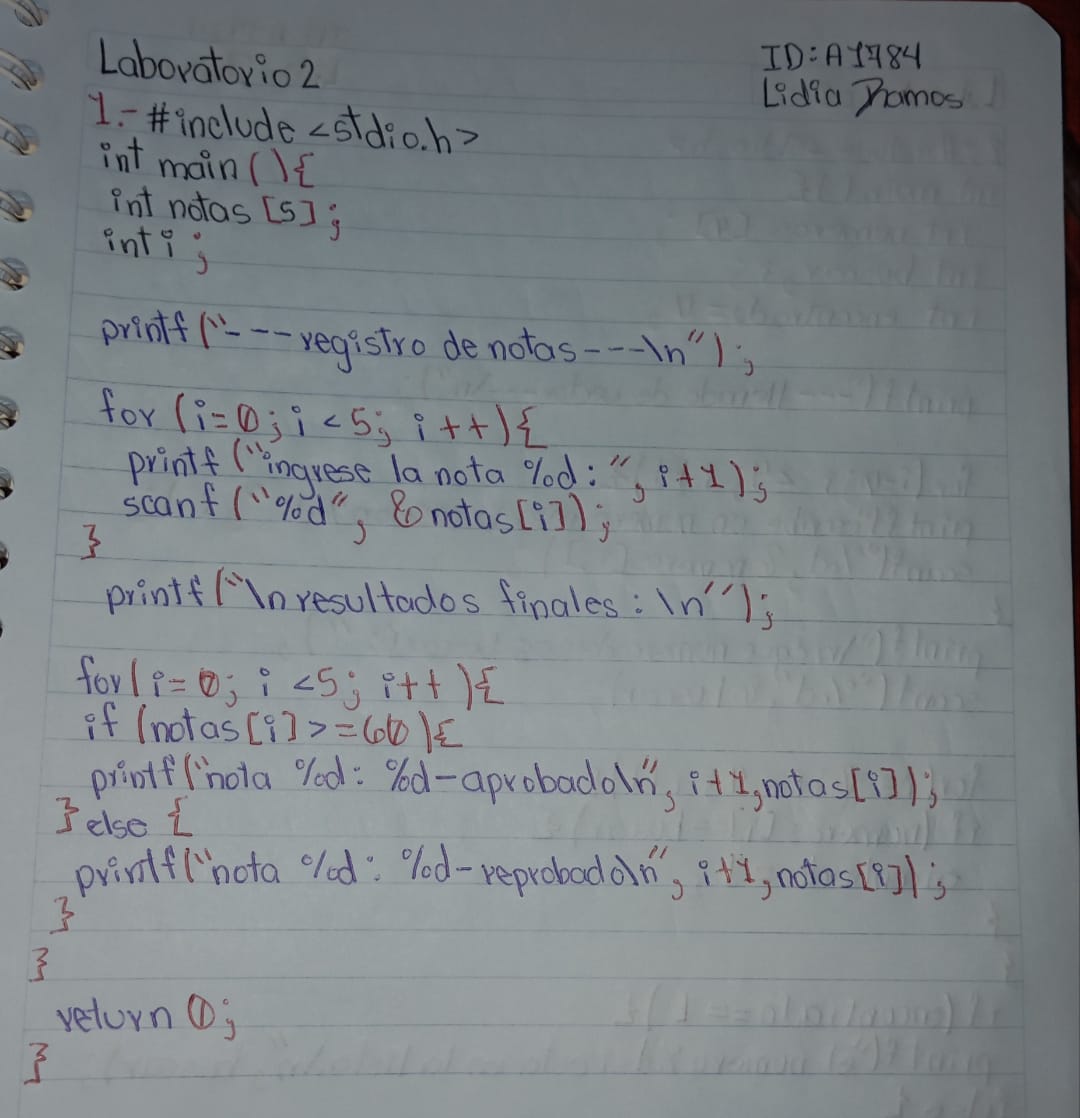 Laboratorio 2
ID: A1784
Lidia Ramos
1.- #include <stdio.h>
int main(){
int notas [5];
int i;
printf("---registro de notas---\n");
for (i=0; i<5; i++){
printf("ingrese la nota %d:", i+1);
scanf("%d", &notas[i]);
}
printf("\nresultados finales:\n");
for(i=0; i<5; i++){
if (notas[i]>=60){
printf("nota %d: %d-aprobado\n", i+1,notas[i]);
} else {
printf("nota %d: %d-reprobado\n", i+1,notas[i]);
}
}
return 0;
}